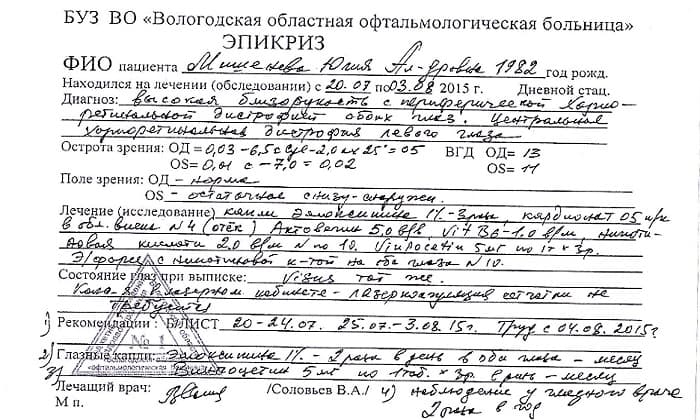 БУЗ ВО «Вологодская областная офтальмологическая больница»
ЭПИКРИЗ
ФИО пациента Мишенева Юлия Ал-дровна 1982 год рожд.
Находился на лечении (обследовании) с 20.07 по 03.08 2015 г. Дневной стац.
Диагноз: высокая близорукость с периферической Хорио-
ретинальной дистрофией обоих глаз. Центральная
хориоретинальная дистрофия левого глаза
Острота зрения: ОД = 0,03 -6,5 с cyl-2,0 ах 25° = 05 ВГД ОД= 13
OS= 0,01 с -7,0 = 0,02 OS= 11
Поле зрения: ОД - норма
OS - остаточное снизу-снаружи.
Лечение (исследование) капли Эмоксипина 1%-3раза, кардионат 05 п/к
в обл. виска N4 (отёк) Актовегин 5.0 в/в, Vit B6-1.0 в/м, никоти-
новая кислота 2,0 в/м N по 10. Vinpocetin 5мг по 1т x 3р.
Э/форез с никотиновой к-той на оба глаза N10.
Состояние глаз при выписке: Visus тот же.
лазерном кабинете - лазеркоагуляция сетчатки не
требуется
1) Рекомендации: Б/ЛИСТ 20-24.07. 25.07.-3.08.15г. Труд с 04.08.2015г.
2) Глазные капли: Эмоксипина 1% - 2 раза в день в оба глаза - месяц
3) Винпоцетин 5 мг по 1таб. x 3р. в день - месяц
Лечащий врач: /Соловьев В.А./ 4) наблюдение у глазного врача
М п. 2 раза в год
№ 1
«офтальмологическая